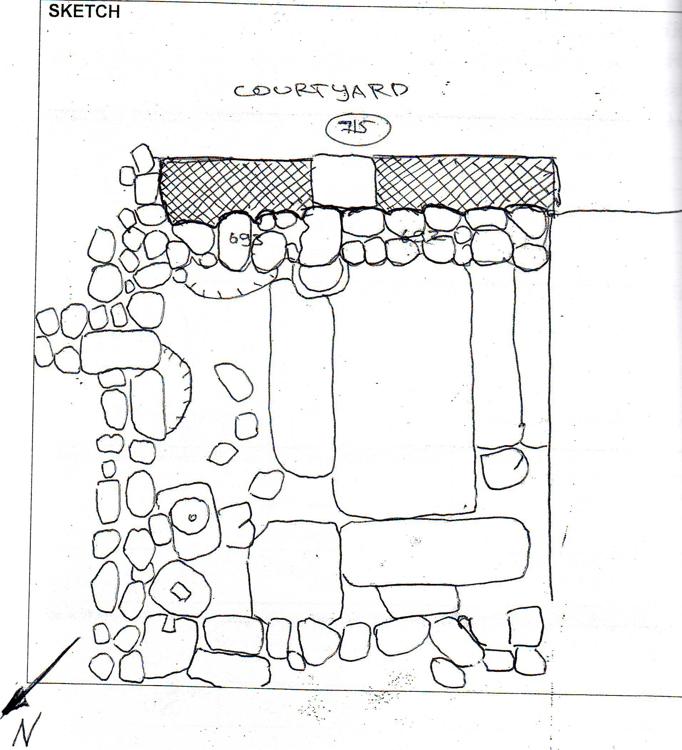 SKETCH
COURTYARD
715
693 692
N